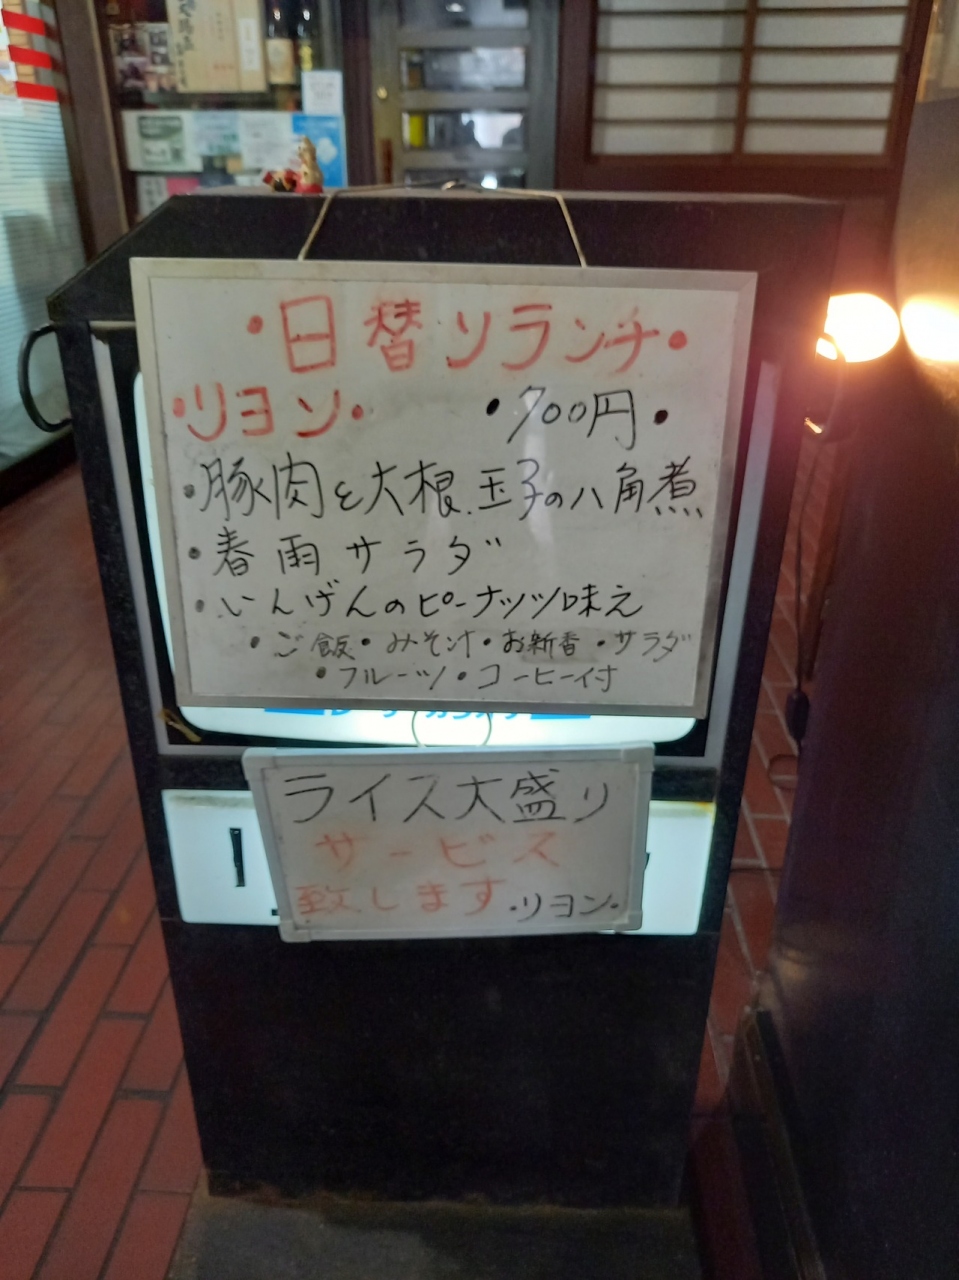 ・日替リランチ・
・リヨン・ ・700円・
・豚肉と大根.玉子の八角煮
・春雨サラダ
・いんげんのピーナッツ味え
・ご飯・みそ汁・お新香・サラダ
・フルーツ・コーヒー付
ライス大盛り
サービス
致します・リヨン・